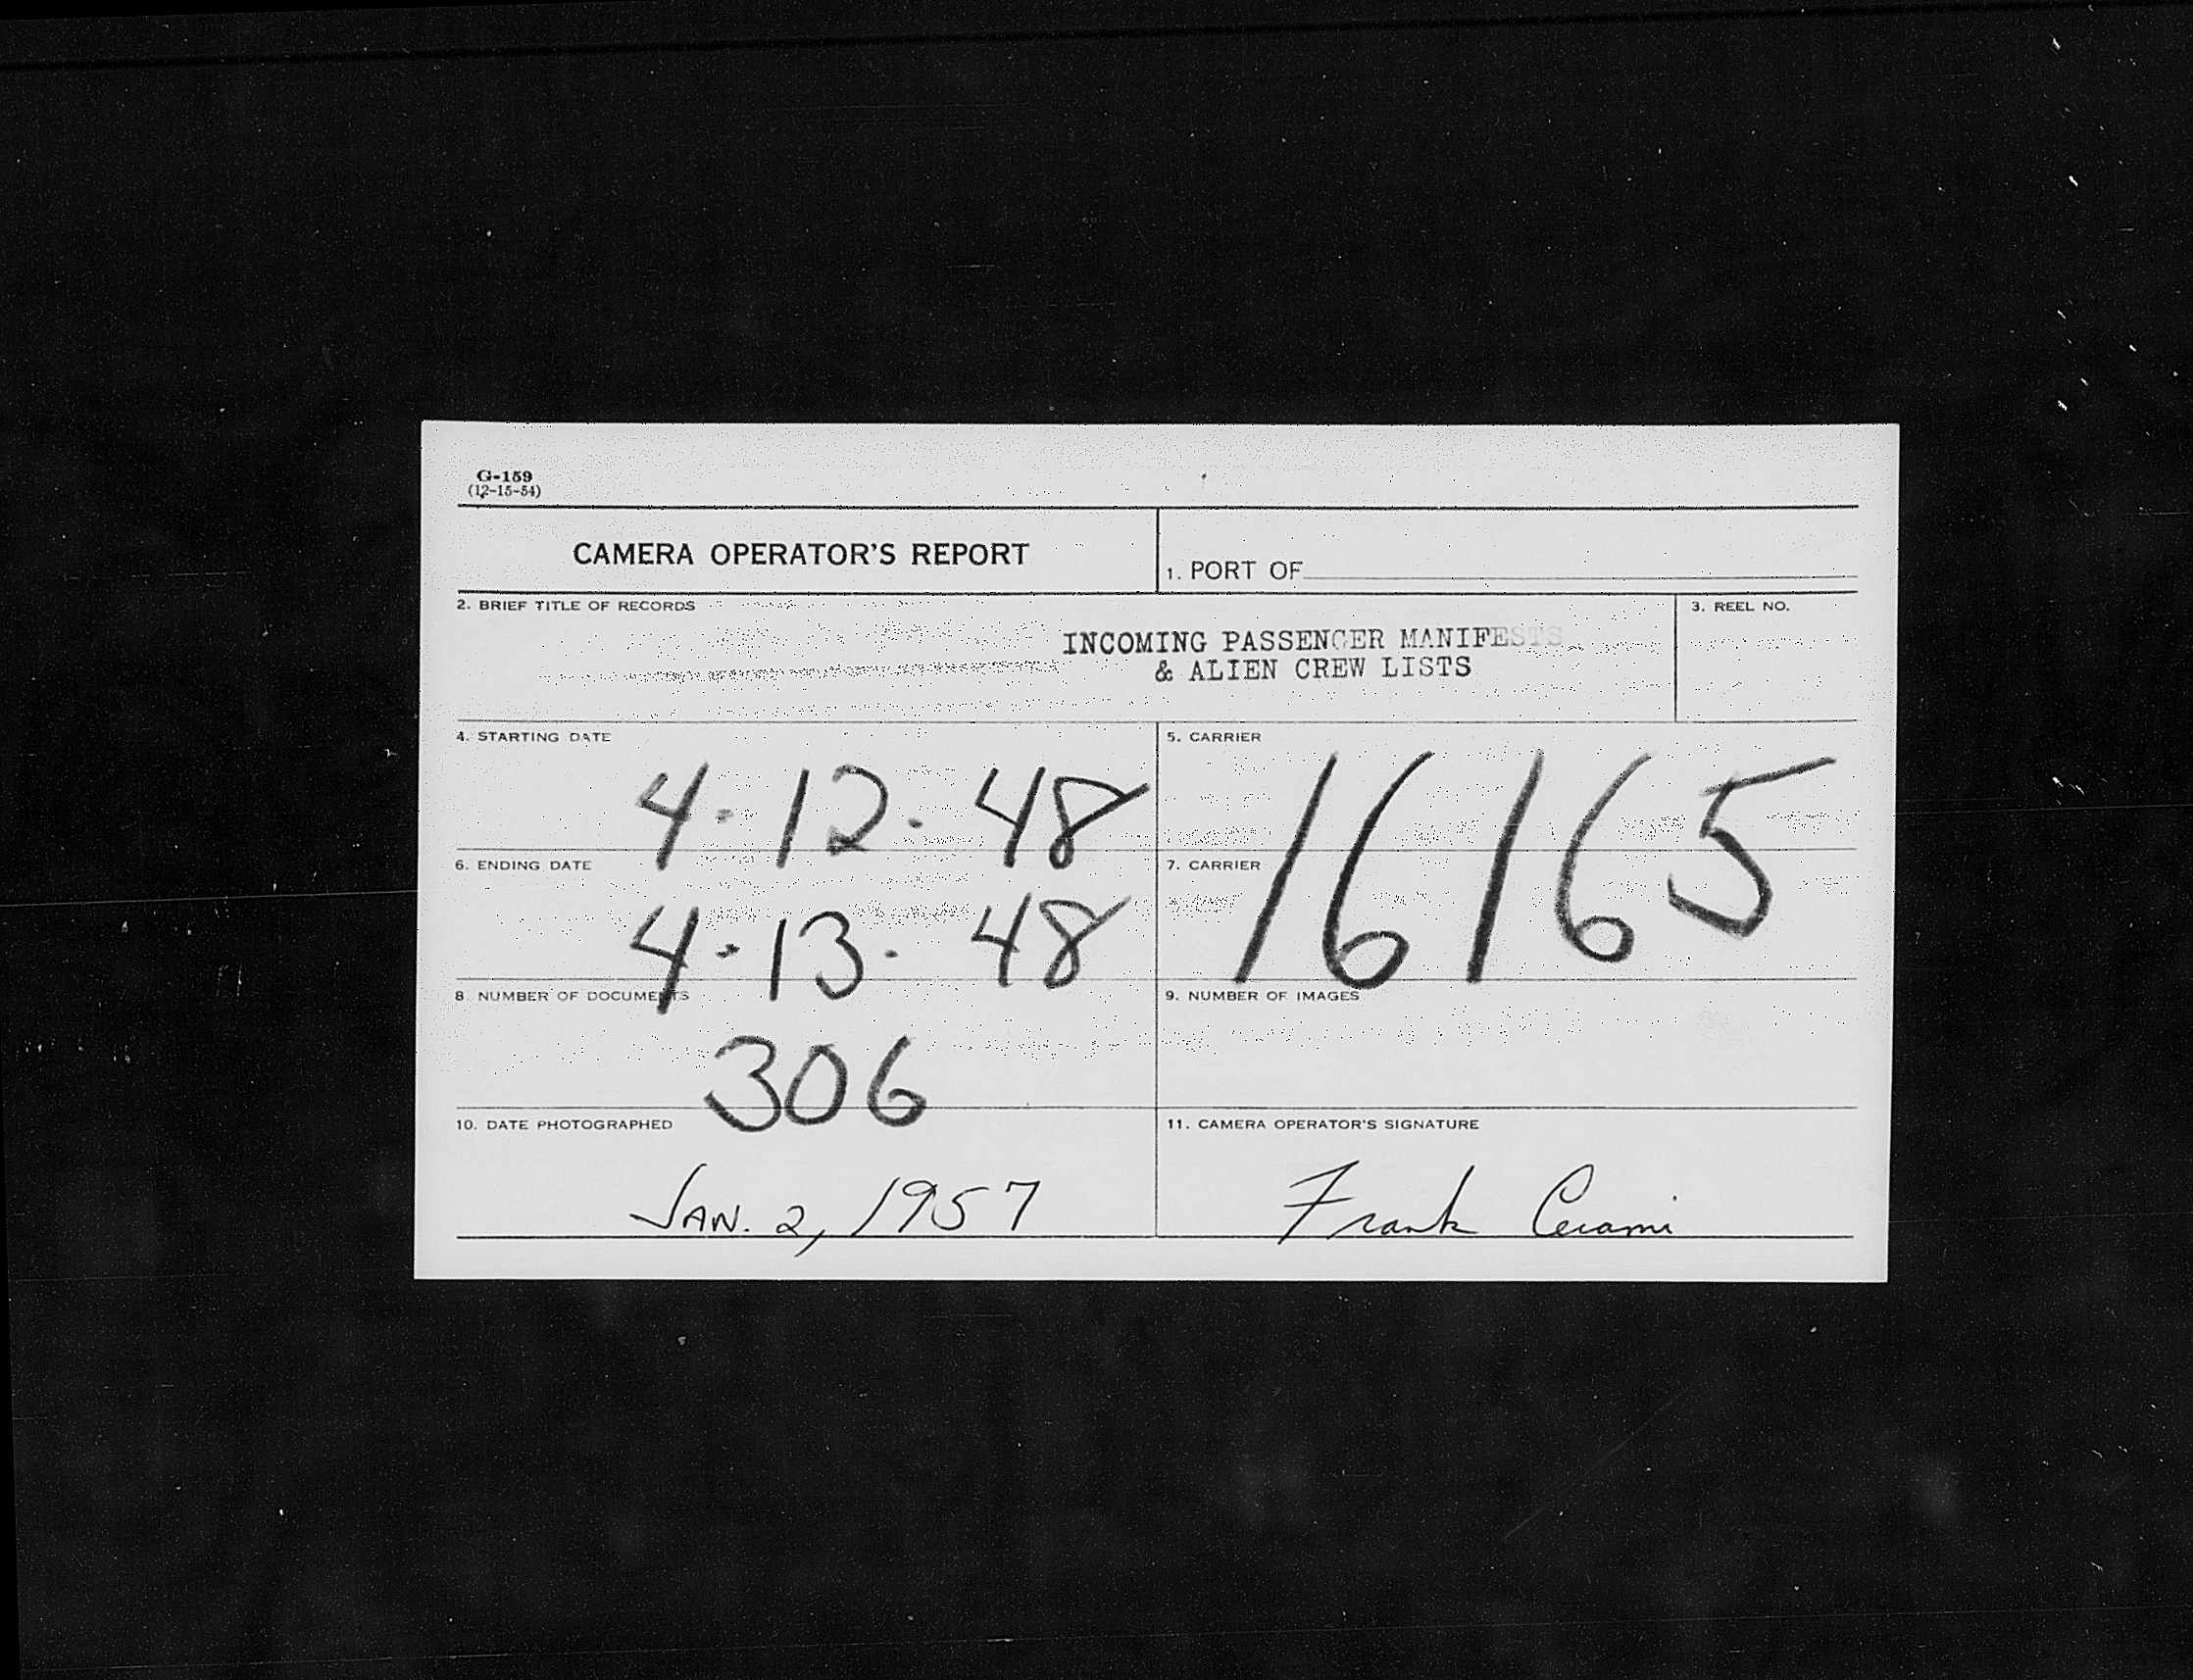 G-159
(12-15-54)
CAMERA OPERATOR'S REPORT
1. PORT OF
2. BRIEF TITLE OF RECORDS
INCOMING PASSENGER MANIFESTS
& ALIEN CREW LISTS
3. REEL NO.
4. STARTING DATE
4-12-48
5. CARRIER
16165
6. ENDING DATE
4-13-48
7. CARRIER
8 NUMBER OF DOCUMENTS
306
9. NUMBER OF IMAGES
10. DATE PHOTOGRAPHED
JAN. 2, 1957
11. CAMERA OPERATOR'S SIGNATURE
Frank Cerami